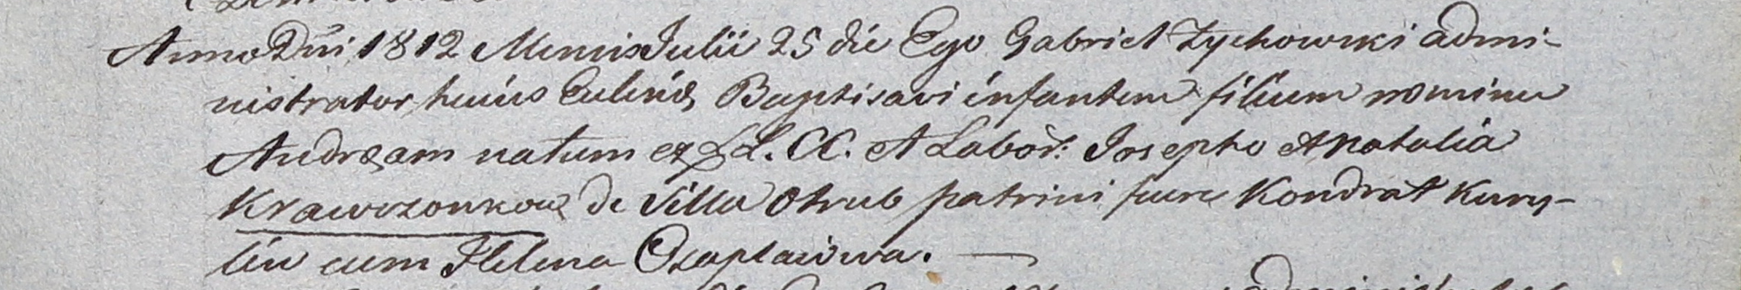 Anno Dni 1812 Mensis Julii 25 die Ego Gabriel Zychowski admi-
nistrator huius Eccl[esi]æ Baptisavi infantem filium nomine
Andreæam natum ex LL. CC. et Labor: Josepho et Natalia
Krawczonkow de Villa Otrub patrini fuere Kondrat Kury-
lin cum Helena Czaplaiowa.